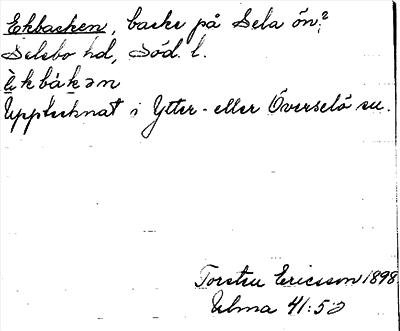 Ekbacken, backe på Sela ön?
Selebo hd, Söd. l.
è̱kbák̠ən
Upptecknat i Ytter- eller Överselö sn.
Torsten Ericsson 1898
Ulma 41:52